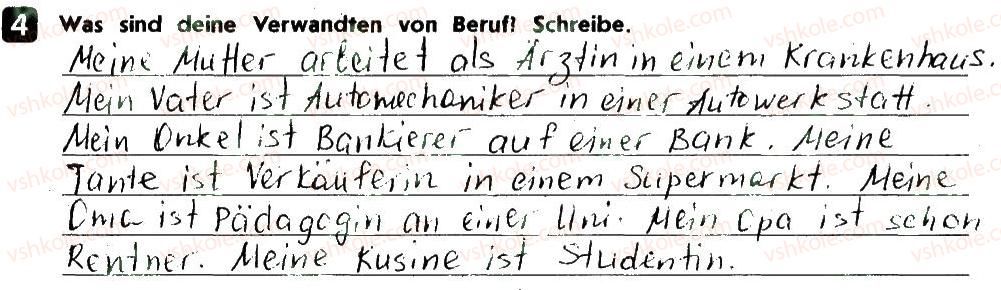 4 Was sind deine Verwandten von Beruf? Schreibe.
Meine Mutter arbeitet als Ärztin in einem Krankenhaus.
Mein Vater ist Automechaniker in einer Autowerkstatt.
Mein Onkel ist Bankierer auf einer Bank. Meine
Tante ist Verkäuferin in einem Supermarkt. Meine
Oma ist Pädagogin an einer Uni. Mein Opa ist schon
Rentner. Meine Kusine ist Studentin.